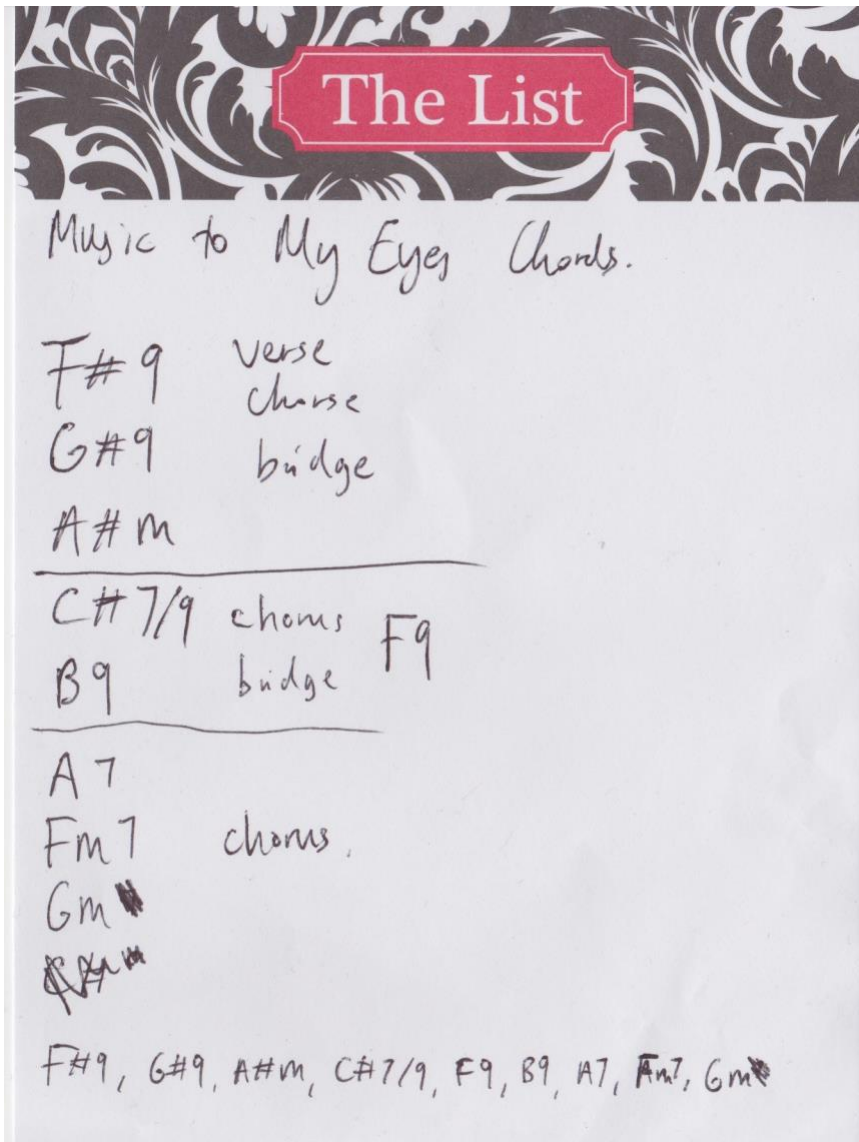 The List
Music to My Eyes Chords.
F#9 verse
chorse
G#9 bridge
A#m
C#7/9 chorus F9
B9 bridge
A7
Fm7 chorus.
Gm
F#9, G#9, A#m, C#7/9, F9, B9, A7, Fm7, Gm